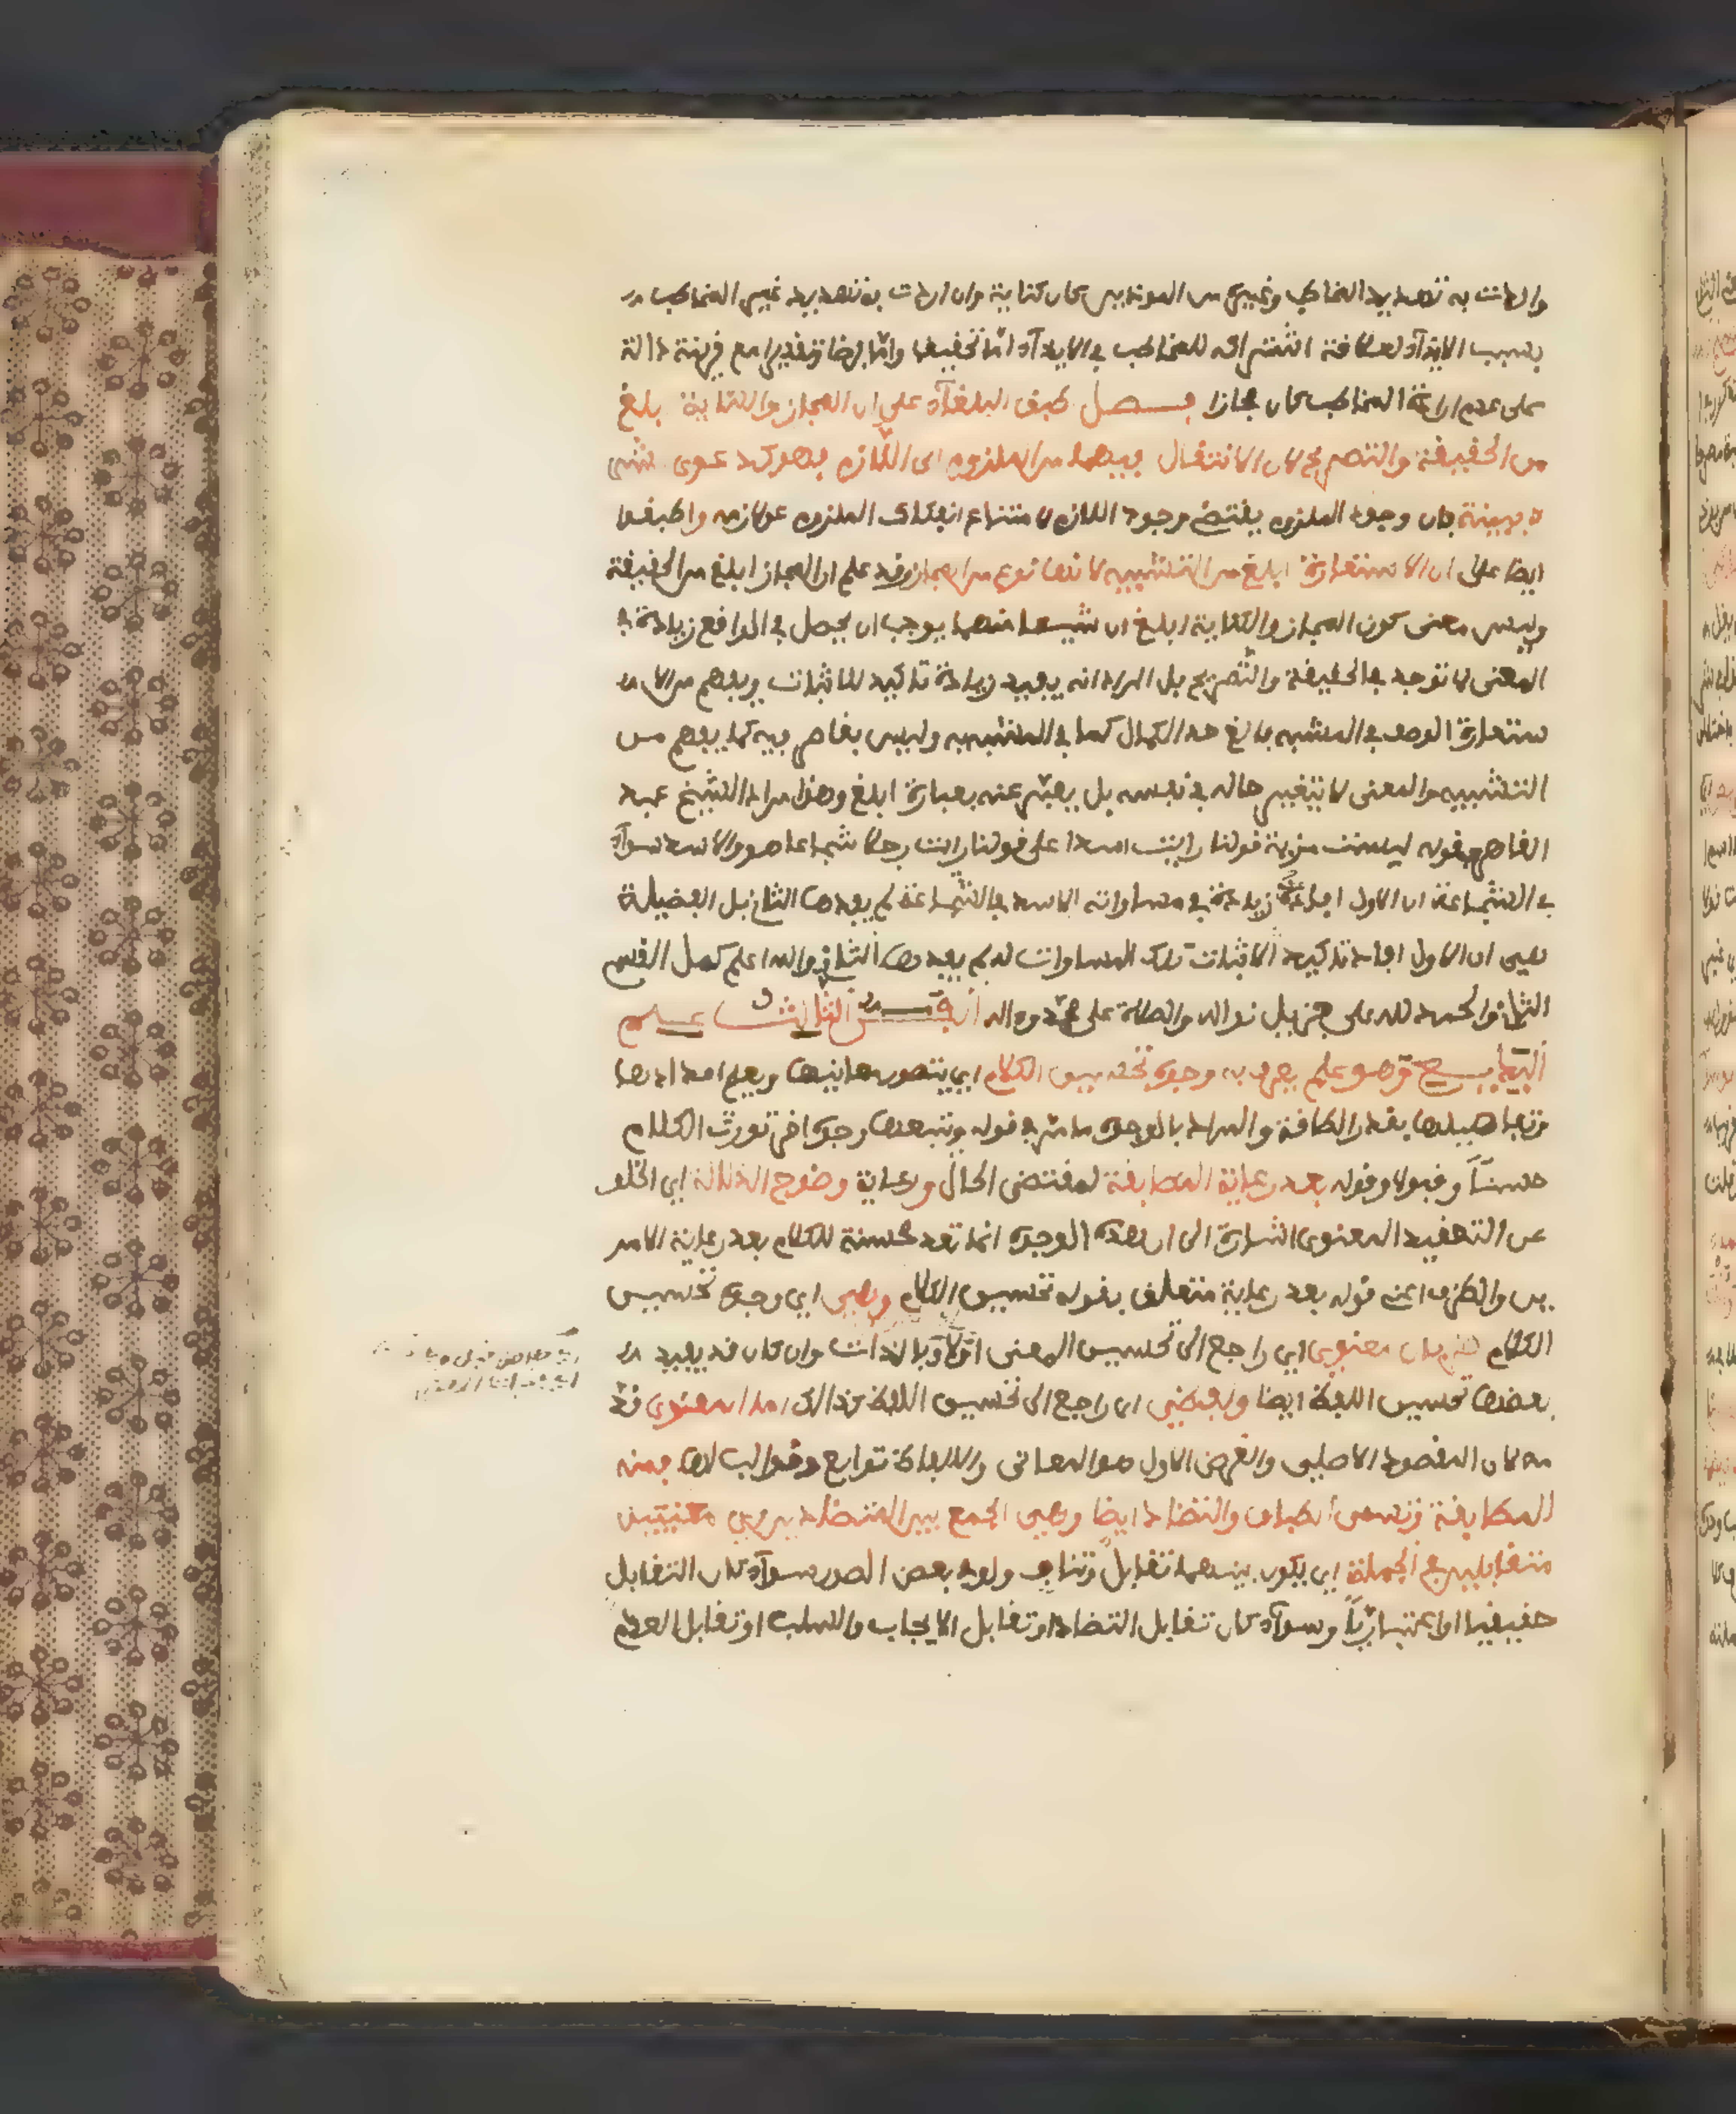 واردت به تهديد المخاطب وغيره من الموذيين كان كناية وان اردت به تهديد غير المخاطب
بسبب الايذآء لعلاقة اشتراكه للمخاطب في الايذآء امّا تحقيقا وامّا فرضا وتقديرا مع قرينة دالة
على عدم ارادة المخاطب كان مجازا فصل اطبق البلغآء على ان المجاز والكناية ابلغ
من الحقيقة والتصريح لان الانتقال فيهما من الملزوم الى اللازم فهو كدعوى الشي
ء ببينة فان وجود الملزوم يقتضي وجود اللازم لامتناع انفكاك الملزوم عن لازمه واطبقوا
ايضا على ان الاستعارة ابلغ من التشبيه لانها نوع من المجاز وقد علم ان المجاز ابلغ من الحقيقة
وليس معنى كون المجاز والكناية ابلغ ان شيـــا منهما يوجب ان يحصل في الواقع زيادة في
المعنى لا توجد في الحقيقة والتصريح بل المراد انه يفيد زيادة تاكيد للاثبات ويفهم من الا
ستعارة ان الوصف في المشبه بالغ حد الكمال كما في المشبه به وليس بقاصر فيه كما يفهم من
التشبيه والمعنى لا يتغير حاله في نفسه بل يعبّر عنه بعبارة ابلغ وهذا مراد الشيخ عبد
القاهر بقوله ليست مزية قولنا رايت اسدا على قولنا رايت رجلا شجاعا هو والاسد سوآء
في الشجاعة ان الاول افاد زيادة في مساواته الاسد في الشجاعة لم يفدها الثاني بل الفضيلة
هي ان الاول افاد تاكيد الاثبات تلك المساوات له لم يفدها الثاني والله اعلم كمل القسم
الثاني والحمد لله على جزيل نواله والصلاة على محمد واله الفــن الثالث علم
البديع وهو علم يعرف به وجوه تحسين الكلام اي يتصور معانيها ويعلم اعدادها
وتفاصيلها بقدر الطاقة والمراد بالوجوه ما مر في قوله وتتبعها وجوه اخر تورث الكلام
حسنًا وقبولا وقوله بعد رعاية المطابقة لمقتضى الحال ورعاية وضوح الدلالة اي الخلو
عن التعقيد المعنوي اشارة الى ان هذه الوجوه انما تعد محسنة للكلام بعد رعاية الامر
ين والظرف اعني قوله بعد رعاية متعلق بقوله تحسين الكلام وهي اي وجوه تحسين
الكلام ضربان معنوي اي راجع الى تحسين المعنى اولا وبالذات وان كان قد يفيد
بعضها تحسين اللفظ ايضا ولفظي اي راجع الى تحسين اللفظ كذالك اما المعنوي قد
مه لان المقصود الاصلي والغرض الاول هو المعاني والالفاظ توابع وقوالب لها فمنه
المطابقة وتسمى الطباق والتضاد ايضا وهي الجمع بين المتضادين اي معنيين
متقابلين في الجملة اي يكون بينهما تقابل وتناف ولو في بعض الصور سوآء كان التقابل
حقيقيا او اعتباريّاً وسوآء كان تقابل التضاد او تقابل الايجاب والسلب او تقابل العدم